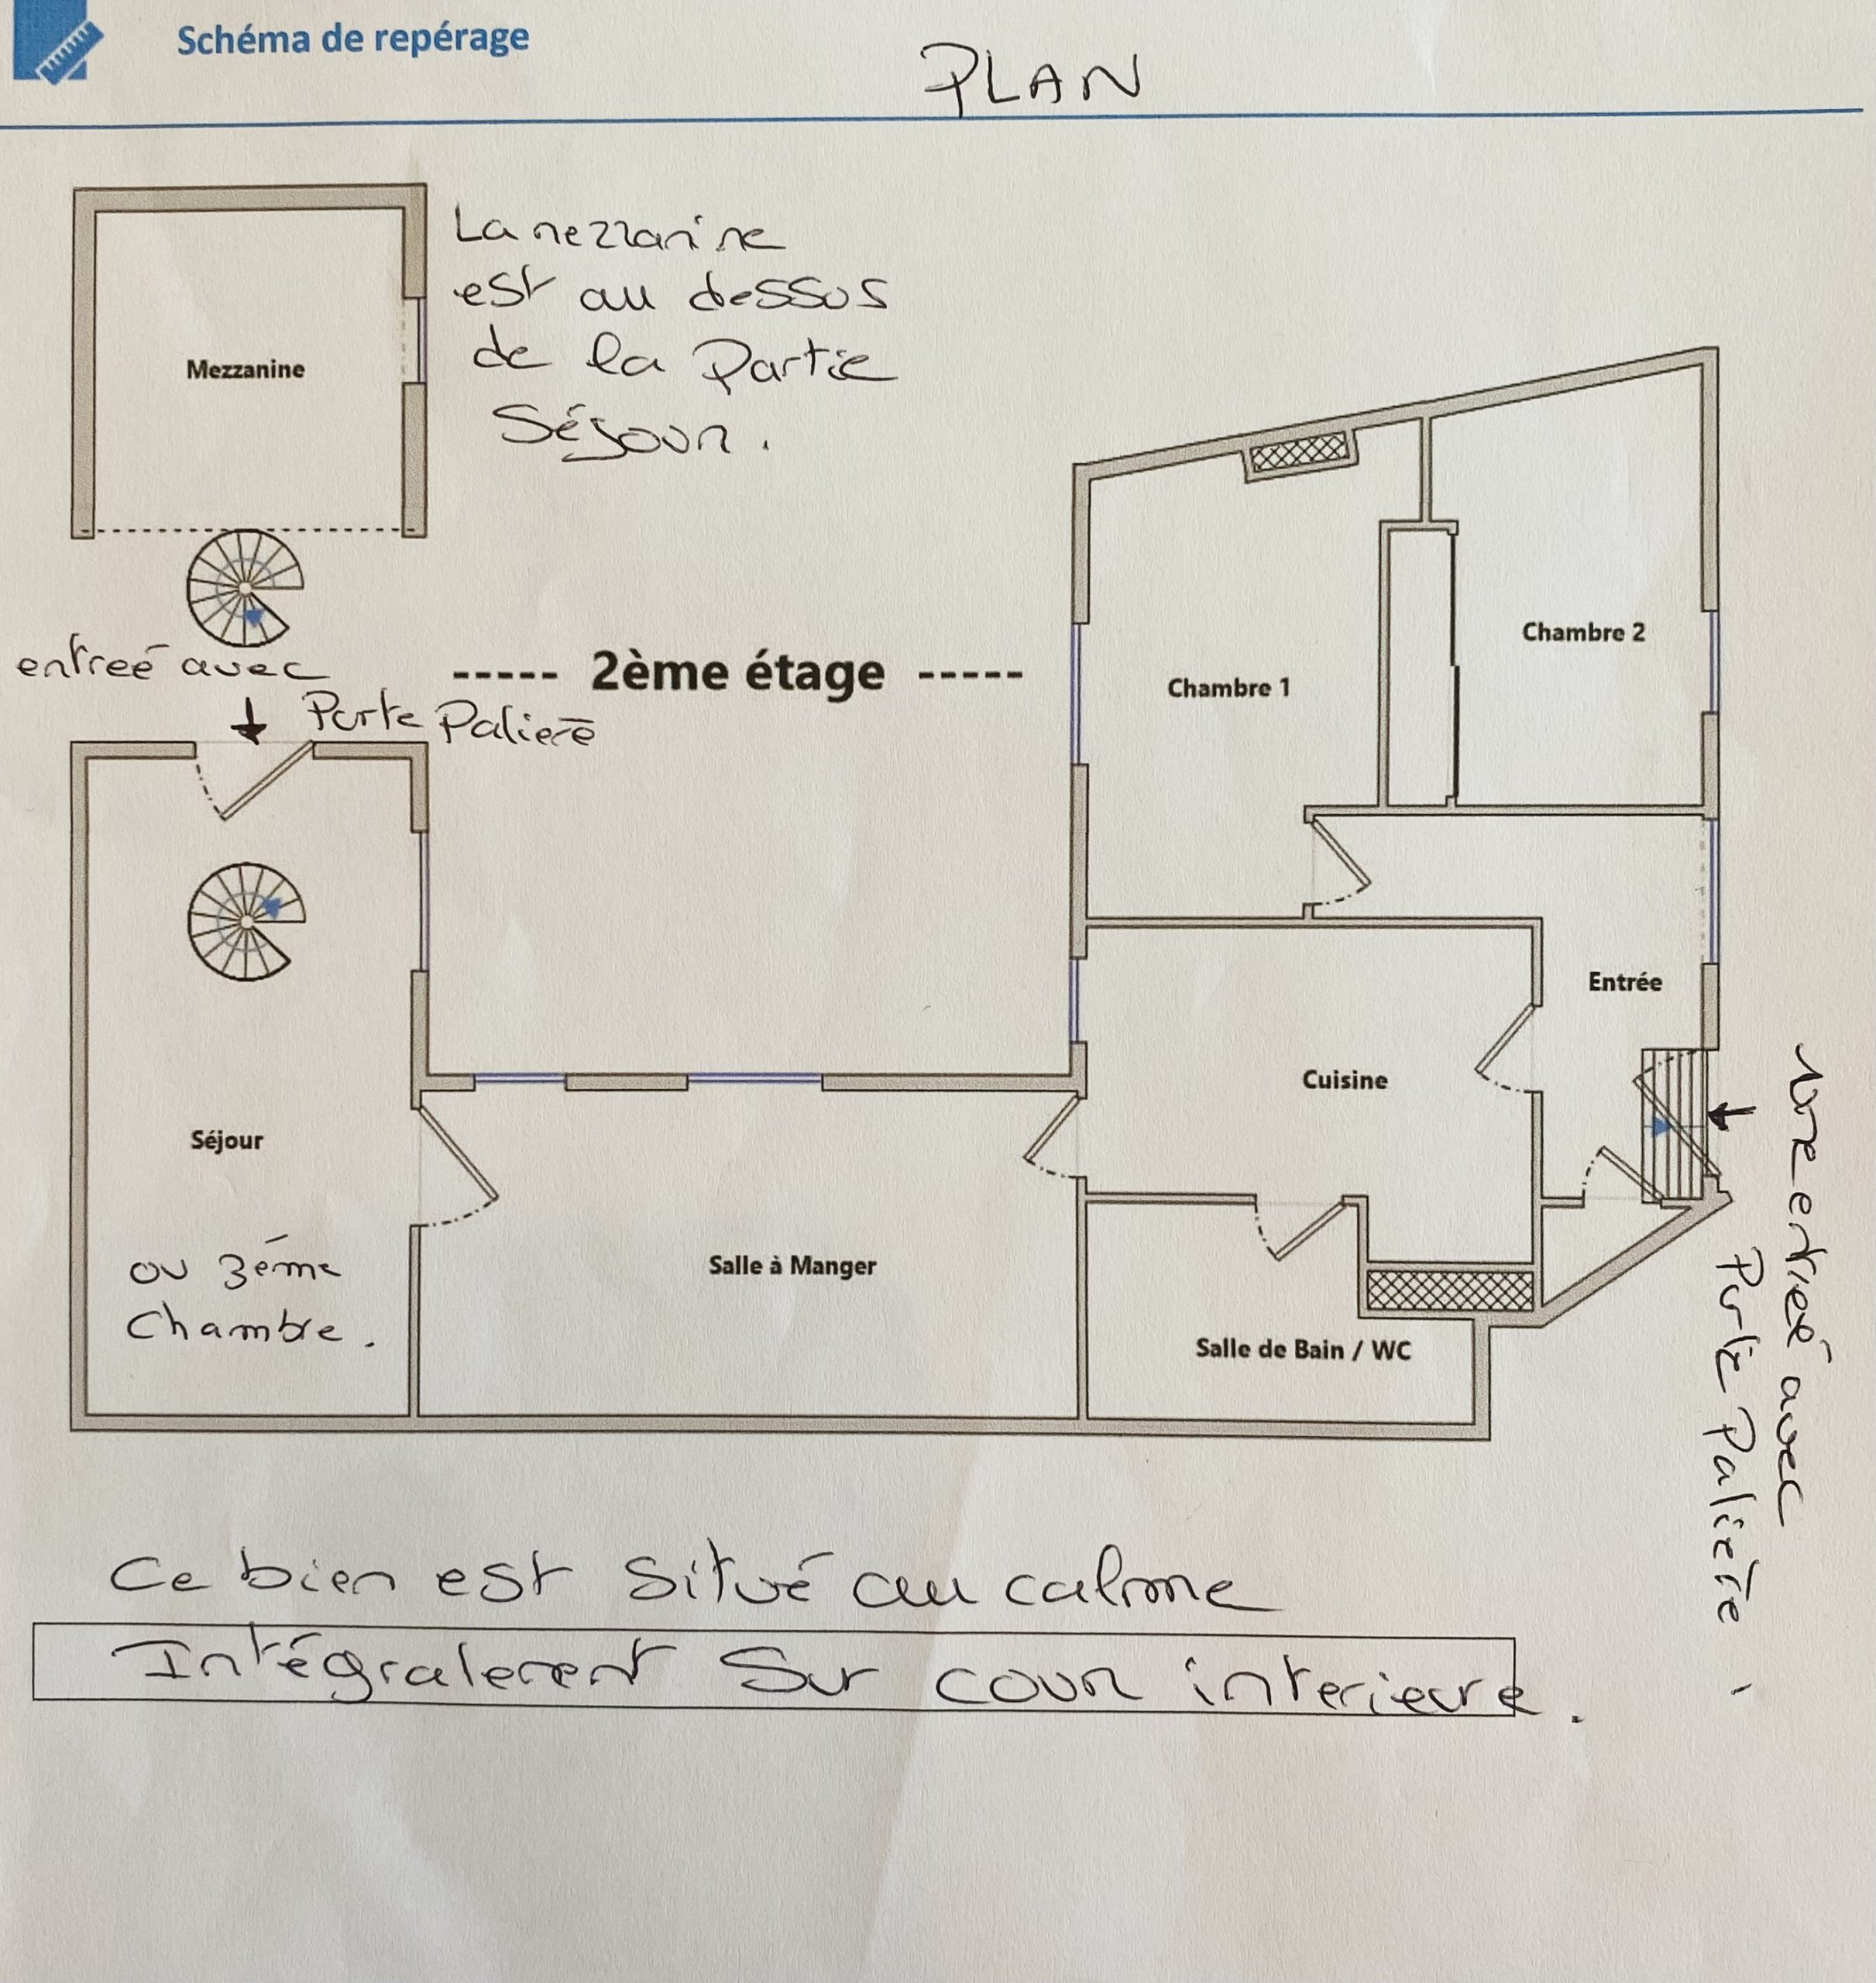 Schéma de repérage
PLAN
La mezzanine
est au dessus
de la Partie
Séjour.
Mezzanine
entreé avec
Porte Paliere
----- 2ème étage -----
Chambre 1
Chambre 2
Entrée
Cuisine
Séjour
ou 3éme
Chambre.
Salle à Manger
Salle de Bain / WC
entreé avec
Porte Paliere
Ce bien est situé au calme
Intégralement Sur cour interieure.